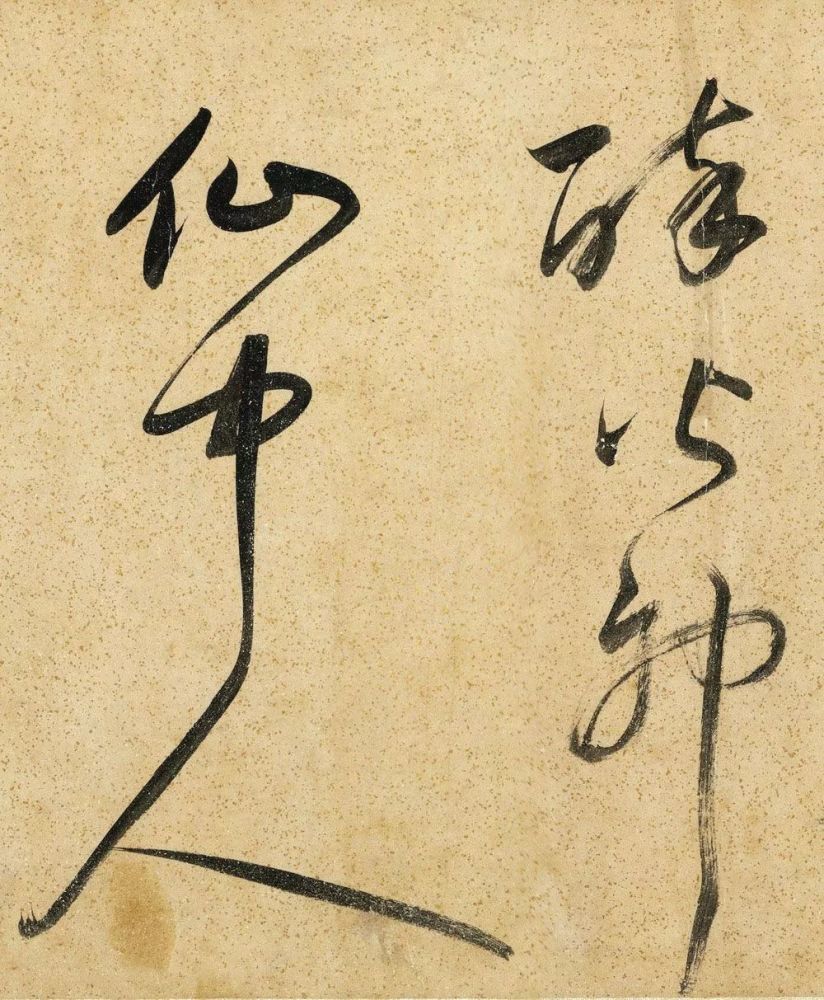 醉神
仙中人